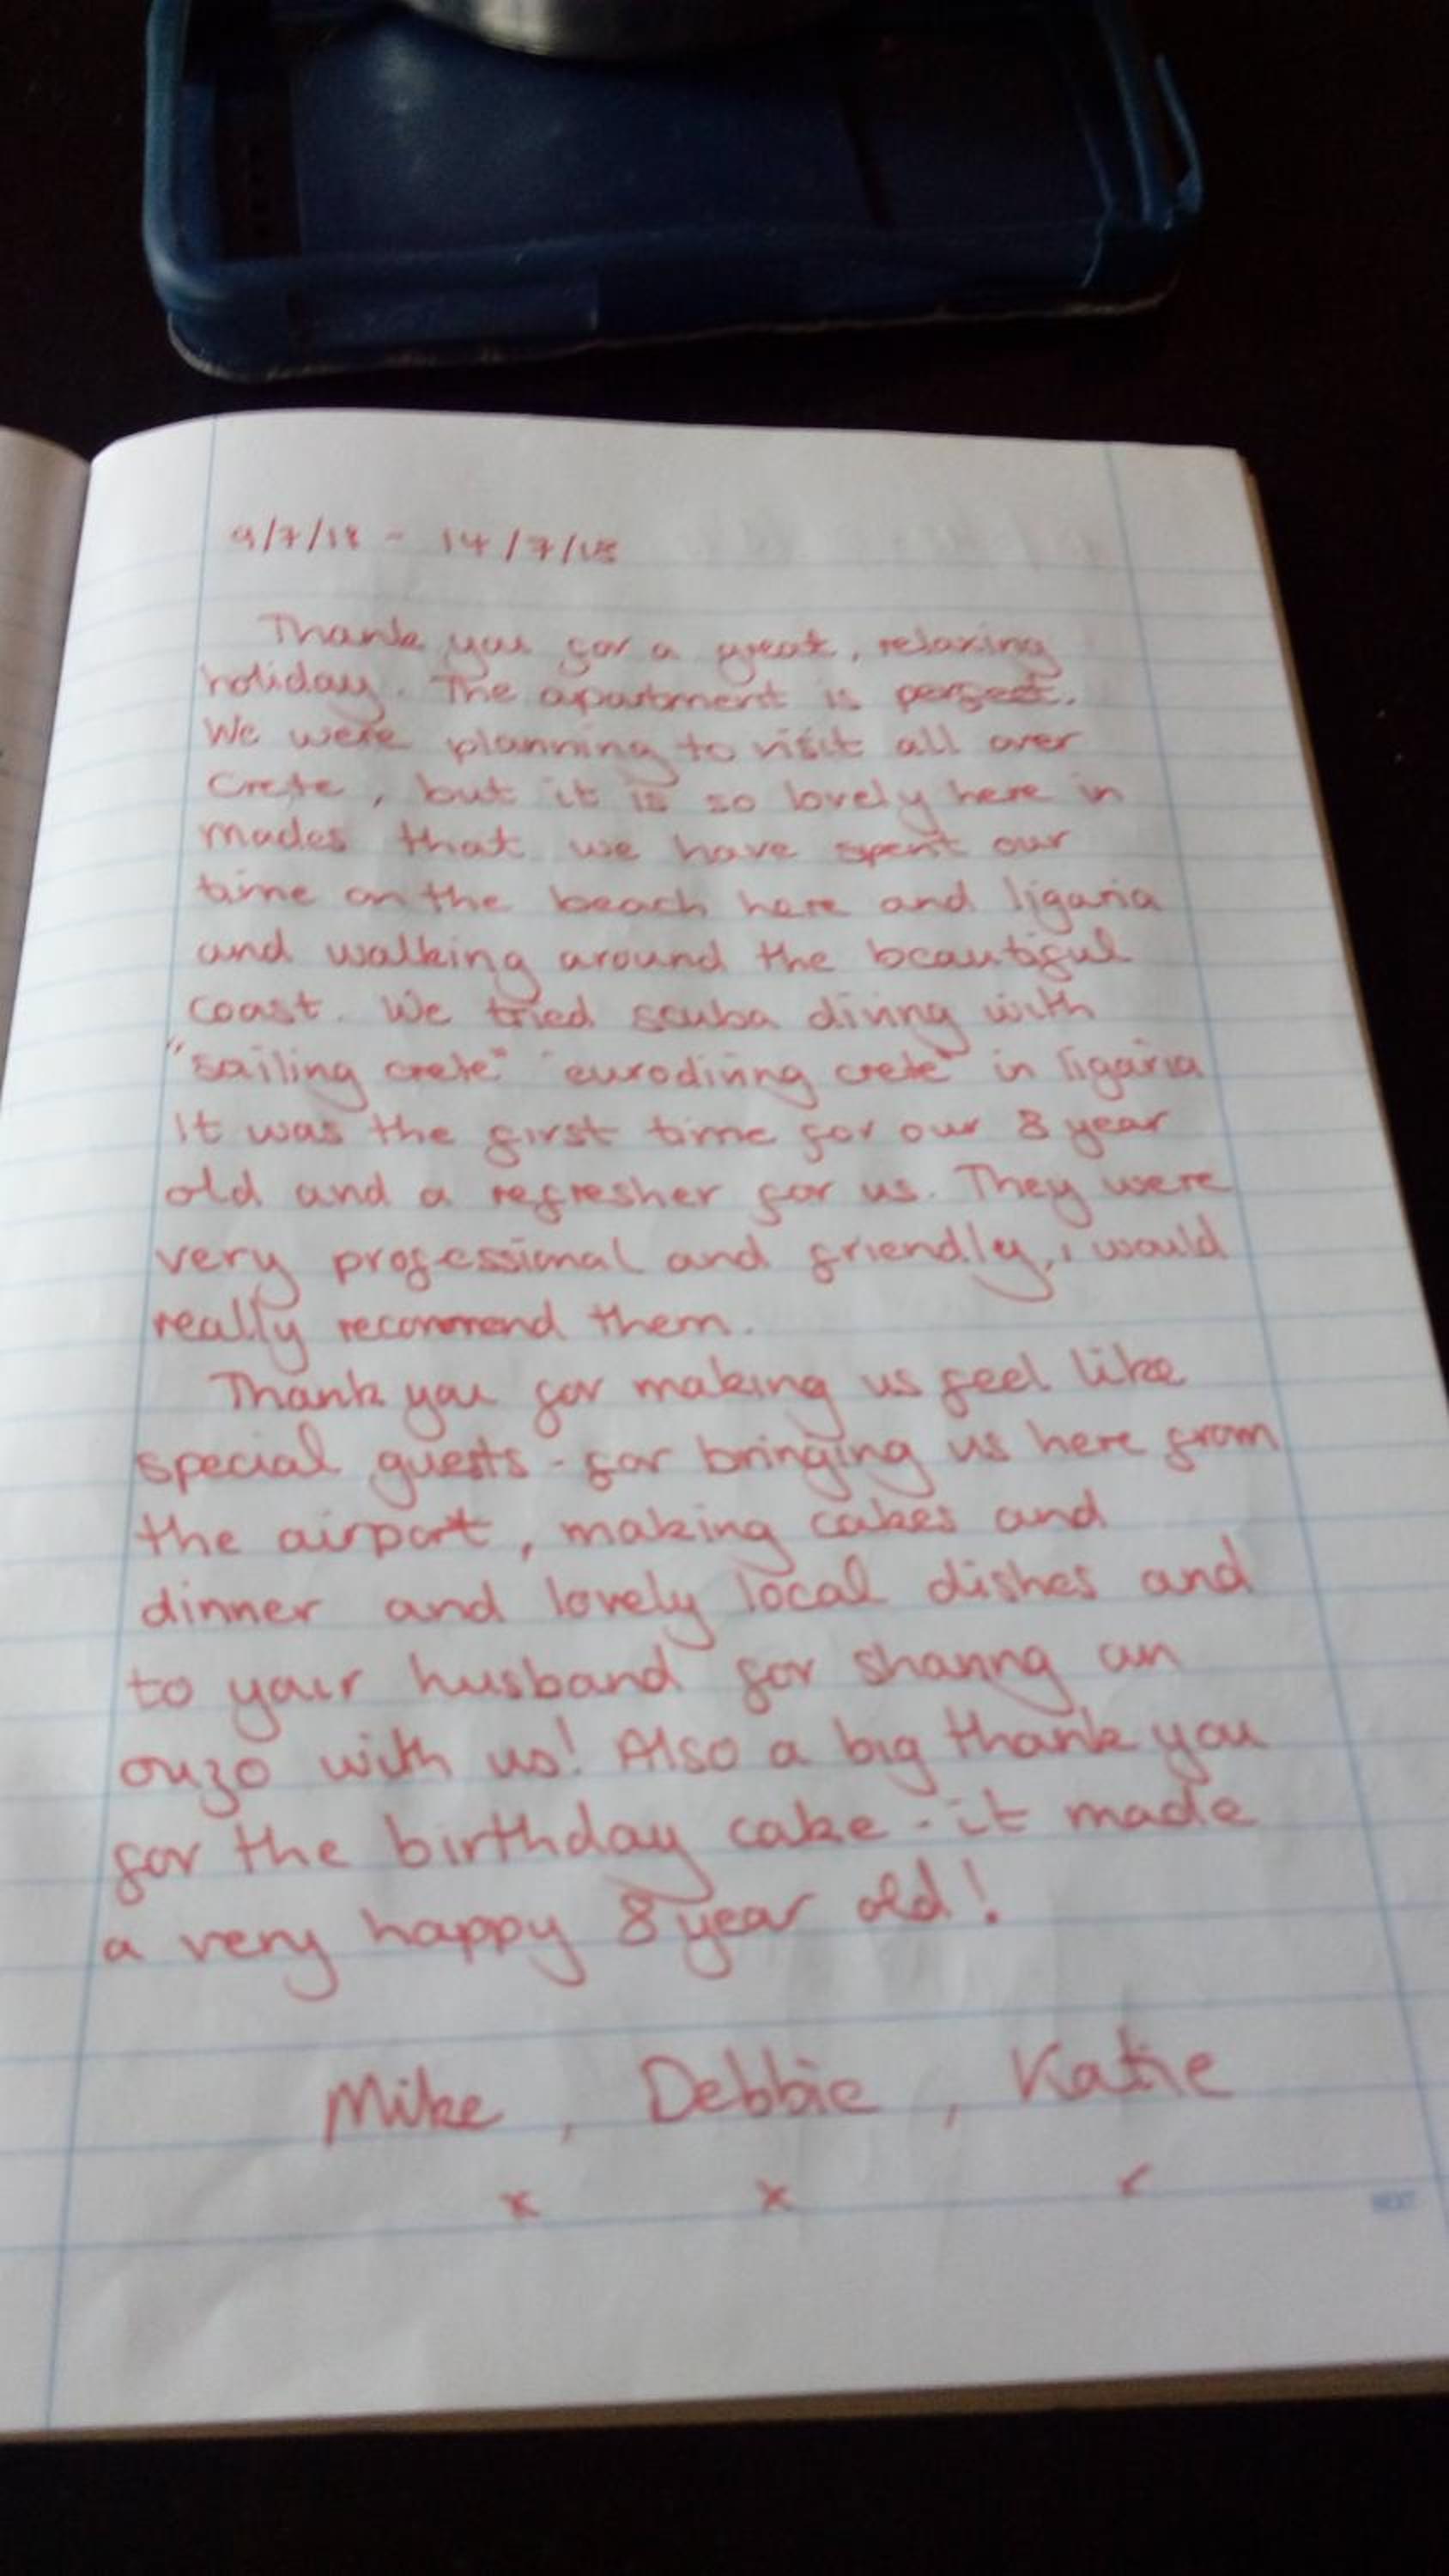 9/7/18 - 14/7/18
Thank you for a great, relaxing
holiday. The apartment is perfect.
We were planning to visit all over
Crete, but it is so lovely here in
mades that we have spent our
time on the beach here and ligaria
and walking around the beautiful
coast. We tried scuba diving with
"sailing crete" "eurodiving crete" in ligaria
It was the first time for our 8 year
old and a refresher for us. They were
very professional and friendly, i would
really recommend them.
Thank you for making us feel like
special guests - for bringing us here from
the airport, making cakes and
dinner and lovely local dishes and
to your husband for sharing an
ouzo with us! Also a big thank you
for the birthday cake - it made
a very happy 8 year old!
Mike, Debbie, Katie
x x x
NEXT